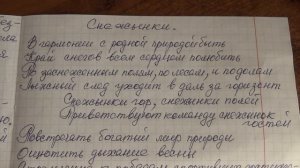 Снежинки.
В гармонии с родной природой быть
Край снегов всем сердцем полюбить
По заснеженным полям, по лесам, и подолам
Лыжный след уходит в даль за горизонт
Снежинки гор, снежинки полей
Приветствуют команду снежинок
гостей
Повстречать богатый мир природы
Ощутить дыхание весны